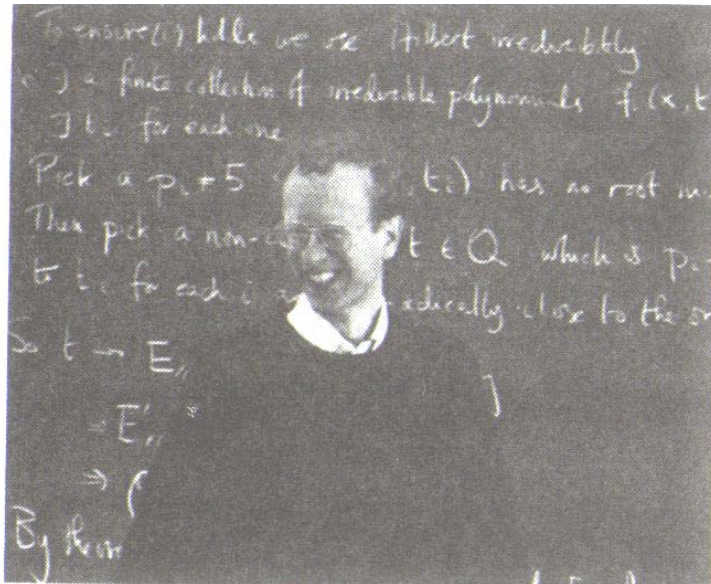 To ensure (1) holds we use Hilbert irreducibility
∃ a finite collection of irreducible polynomials f (x, t
∃ t for each one
Pick a p_i ≠ 5 t_i) has no root m
Then pick a non- t ∈ Q which is p_i-
to t_i for each i adically close to the or
So t → E
= E'
⇒ (
By